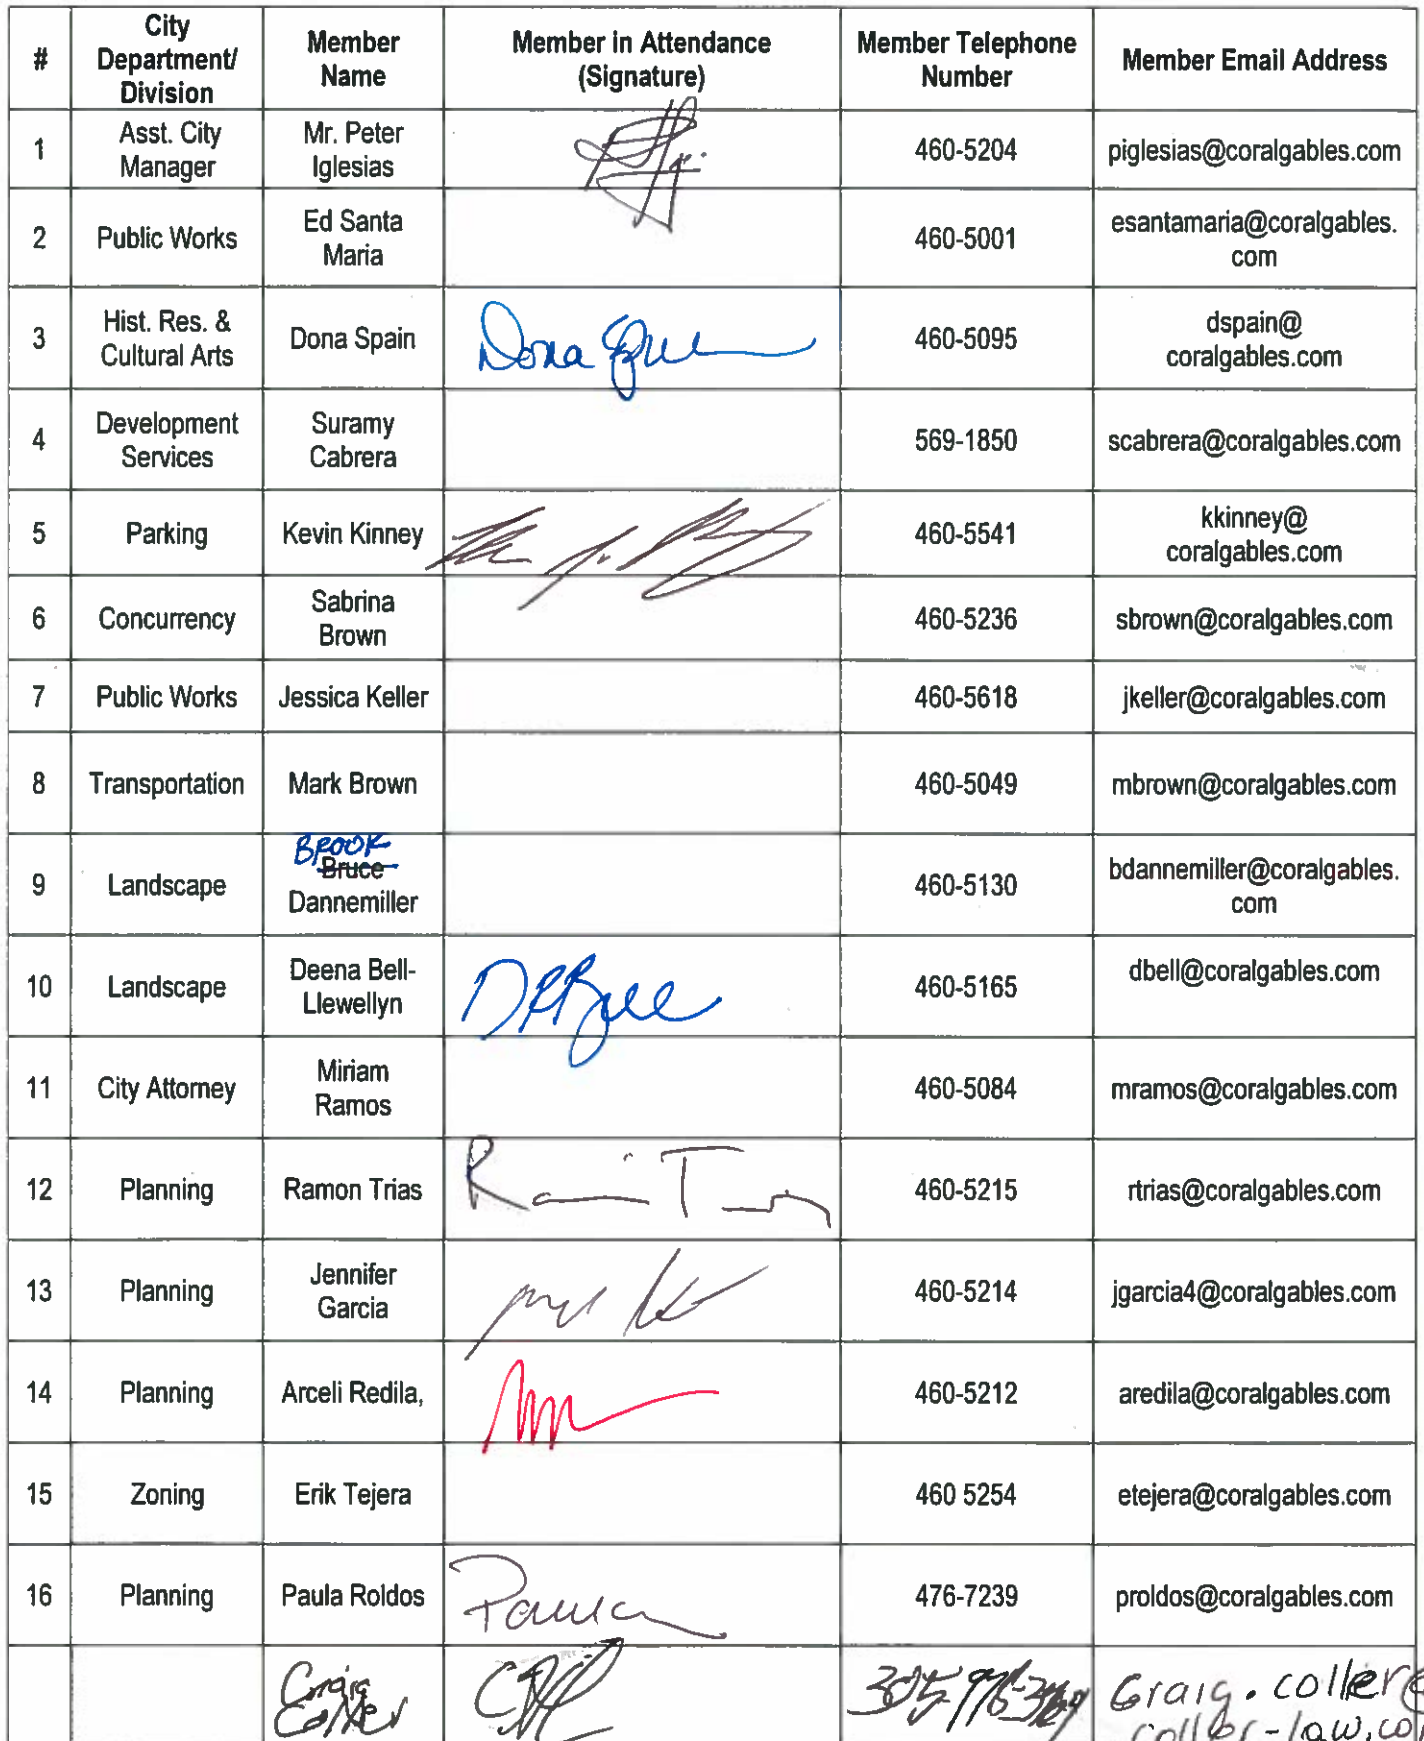 #
City
Department/
Division
Member
Name
Member in Attendance
(Signature)
Member Telephone
Number
Member Email Address
1
Asst. City
Manager
Mr. Peter
Iglesias
460-5204
piglesias@coralgables.com
2
Public Works
Ed Santa
Maria
460-5001
esantamaria@coralgables.
com
3
Hist. Res. &
Cultural Arts
Dona Spain
Dona Spain
460-5095
dspain@
coralgables.com
4
Development
Services
Suramy
Cabrera
569-1850
scabrera@coralgables.com
5
Parking
Kevin Kinney
460-5541
kkinney@
coralgables.com
6
Concurrency
Sabrina
Brown
460-5236
sbrown@coralgables.com
7
Public Works
Jessica Keller
460-5618
jkeller@coralgables.com
8
Transportation
Mark Brown
460-5049
mbrown@coralgables.com
9
Landscape
BROOK
Bruce
Dannemiller
460-5130
bdannemiller@coralgables.
com
10
Landscape
Deena Bell-
Llewellyn
460-5165
dbell@coralgables.com
11
City Attorney
Miriam
Ramos
460-5084
mramos@coralgables.com
12
Planning
Ramon Trias
460-5215
rtrias@coralgables.com
13
Planning
Jennifer
Garcia
460-5214
jgarcia4@coralgables.com
14
Planning
Arceli Redila,
460-5212
aredila@coralgables.com
15
Zoning
Erik Tejera
460 5254
etejera@coralgables.com
16
Planning
Paula Roldos
Paula
476-7239
proldos@coralgables.com
Craig
Coller
Craig.coller@
coller-law.co